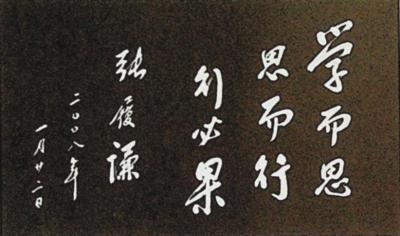 学而思
思而行
行必果
张履谦
二〇〇八年
一月廿二日